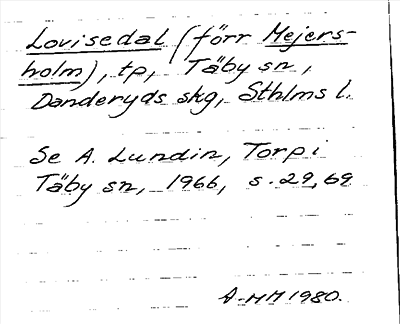 Lovisedal (förr Mejers-
holm), tp, Täby sn,
Danderyds skg, Sthlms l.
Se A. Lundin, Torp i
Täby sn, 1966, s. 29, 69
A-MM 1980.